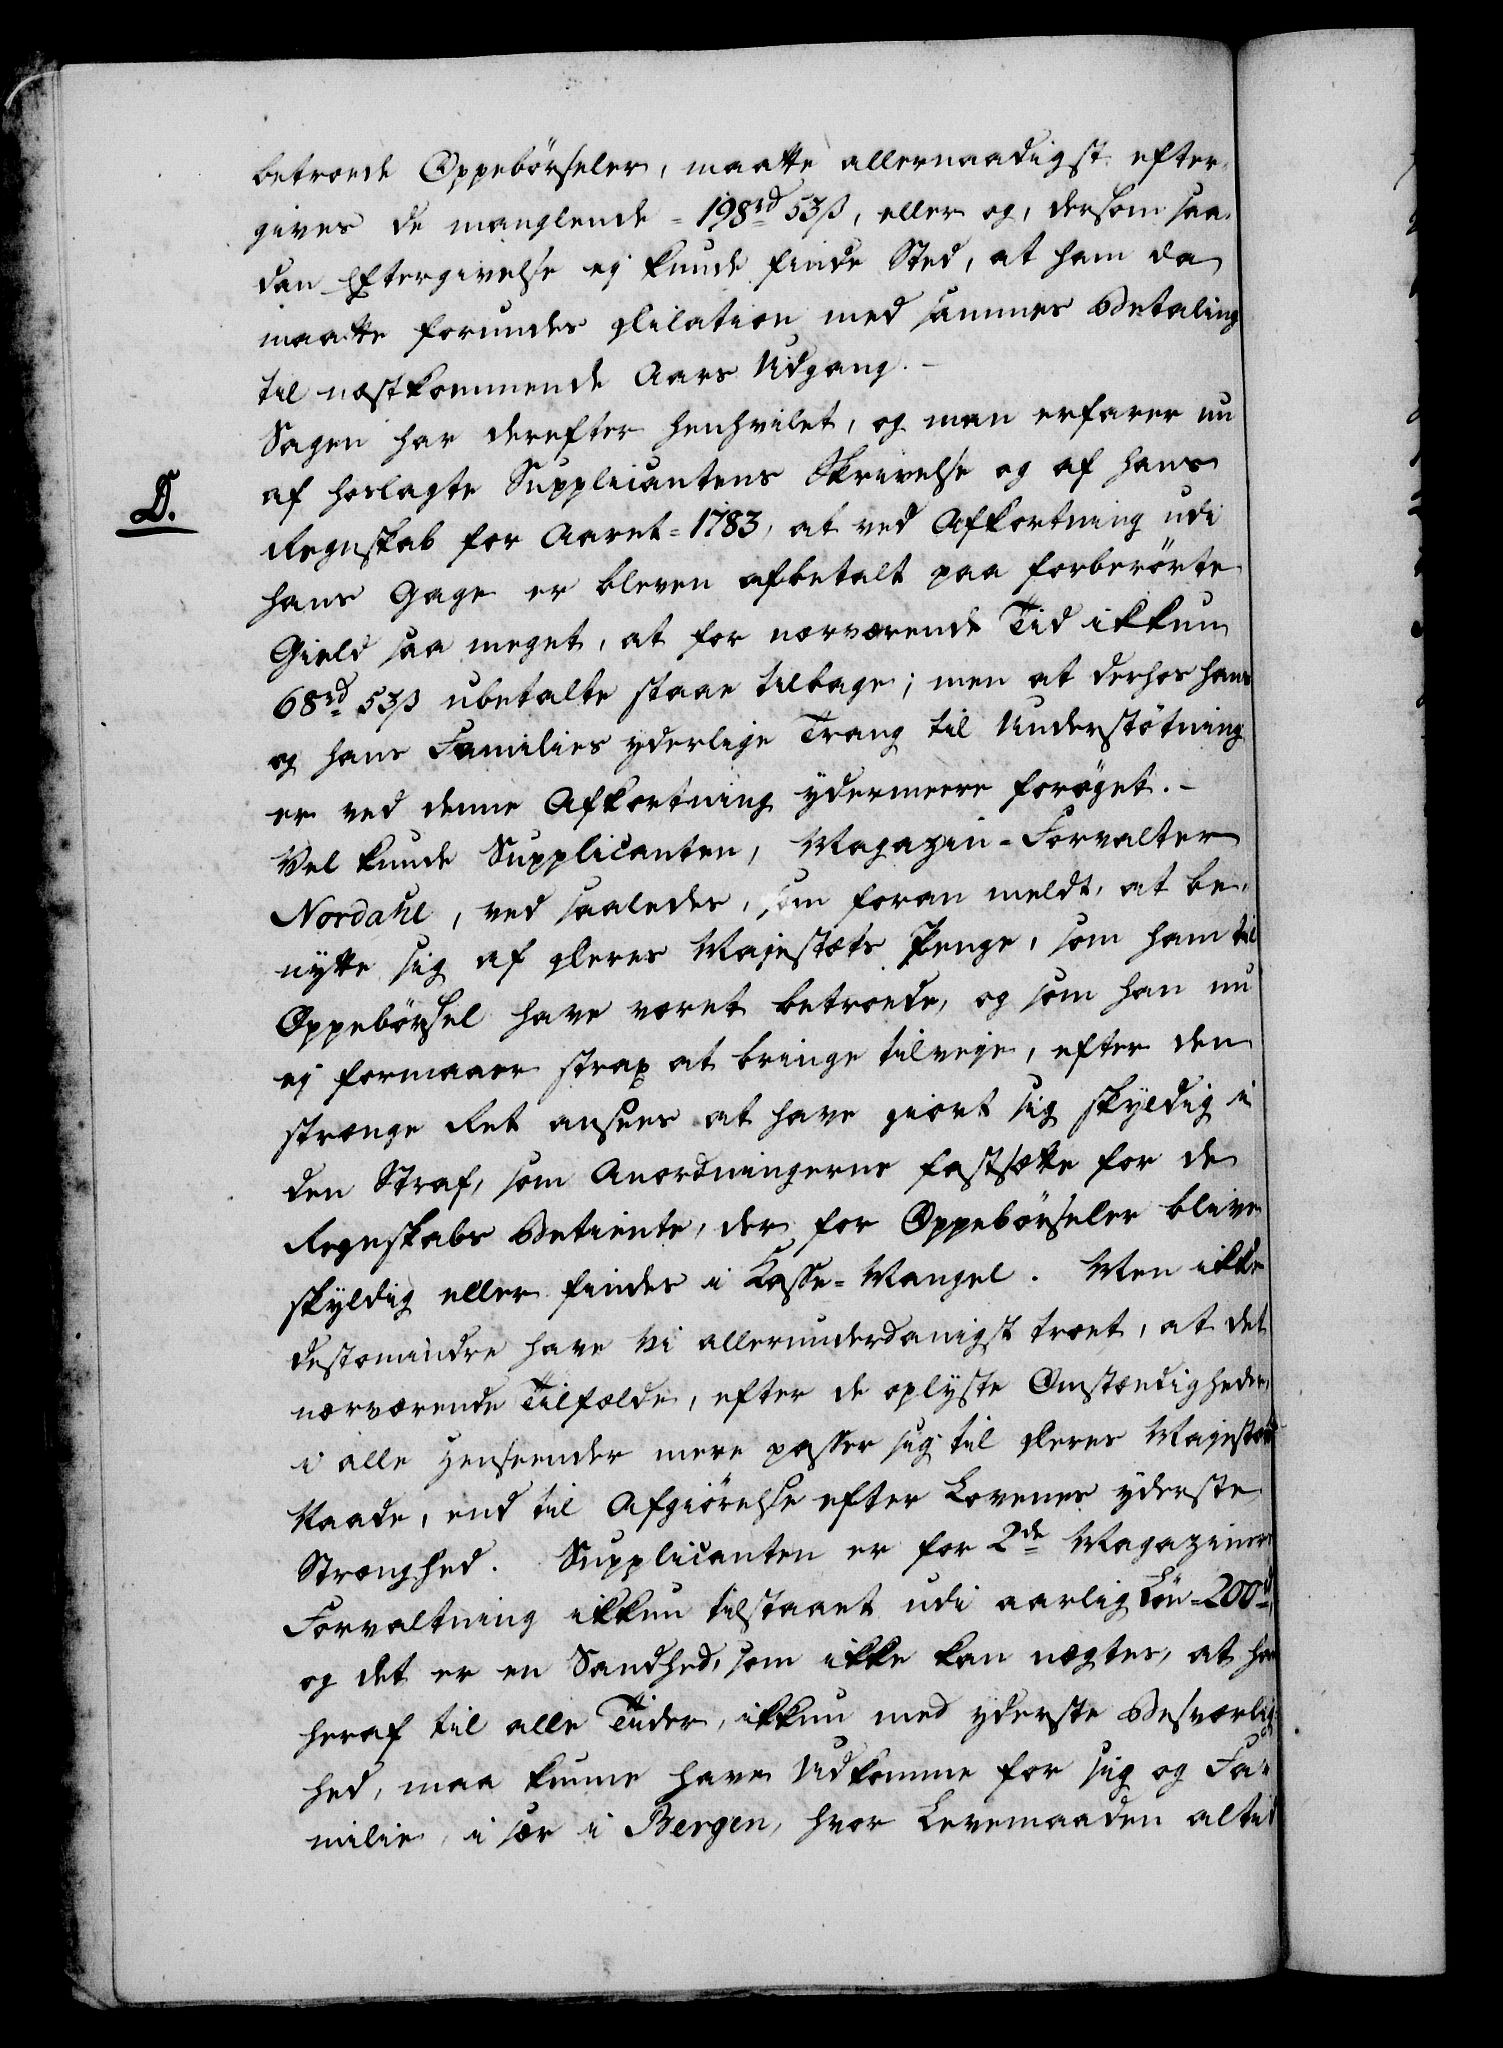 betroede Oppebörseler, maatte allernaadigst efter-
gives de manglende = 198rd 53ß, eller og, dersom saa-
dan Eftergivelse ej kunde finde Sted, at ham da
maatte forundes Dilation med sammes Betaling
til næstkommende Aars Udgang. –
Sagen har derefter henhvilet, og man erfarer nu
af hoslagte Supplicantens Skrivelse og af hans
D.
Regnskab for Aaret = 1783, at ved Afkortning udi
hans Gage er bleven afbetalt paa forberörte
Gield saa meget, at for nærværende Tid ikkun
68rd 53ß ubetalte staae tilbage; men at derhos hans
og hans Families yderlige Trang til Understötning
er ved denne Afkortning ydermeere foröget. –
Vel kunde Supplicanten, Magazin-Forvalter
Nordahl, ved saaledes, som foran meldt, at be-
nytte sig af Deres Majestæts Penge, som ham til
Oppebörsel have været betroede, og som han nu
ej formaaer strax at bringe tilveje, efter den
strænge Ret ansees at have giort sig skyldig i
den Straf, som Anordningerne fastsætte for de
Regnskabs Betiente, der for Oppebörseler blive
skyldig eller findes i Casse-Mangel. Men ikke
destomindre have Vi allerunderdanigst troet, at det
nærværende Tilfælde, efter de oplyste Omstændigheder,
i alle Henseender mere passer sig til Deres Majestæts
Naade, end til Afgiörelse efter Lovenes yderste
Strænghed. Supplicanten er for 2de Magaziners
Forvaltning ikkun tilstaaet udi aarlig Lön = 200rd,
og det er en Sandhed, som ikke kan nægtes, at han
heraf til alle Tiider, ikkun med yderste Besværlig-
hed, maa kunne have Udkomme for sig og Fa-
milie, i sær i Bergen, hvor Levemaaden altid